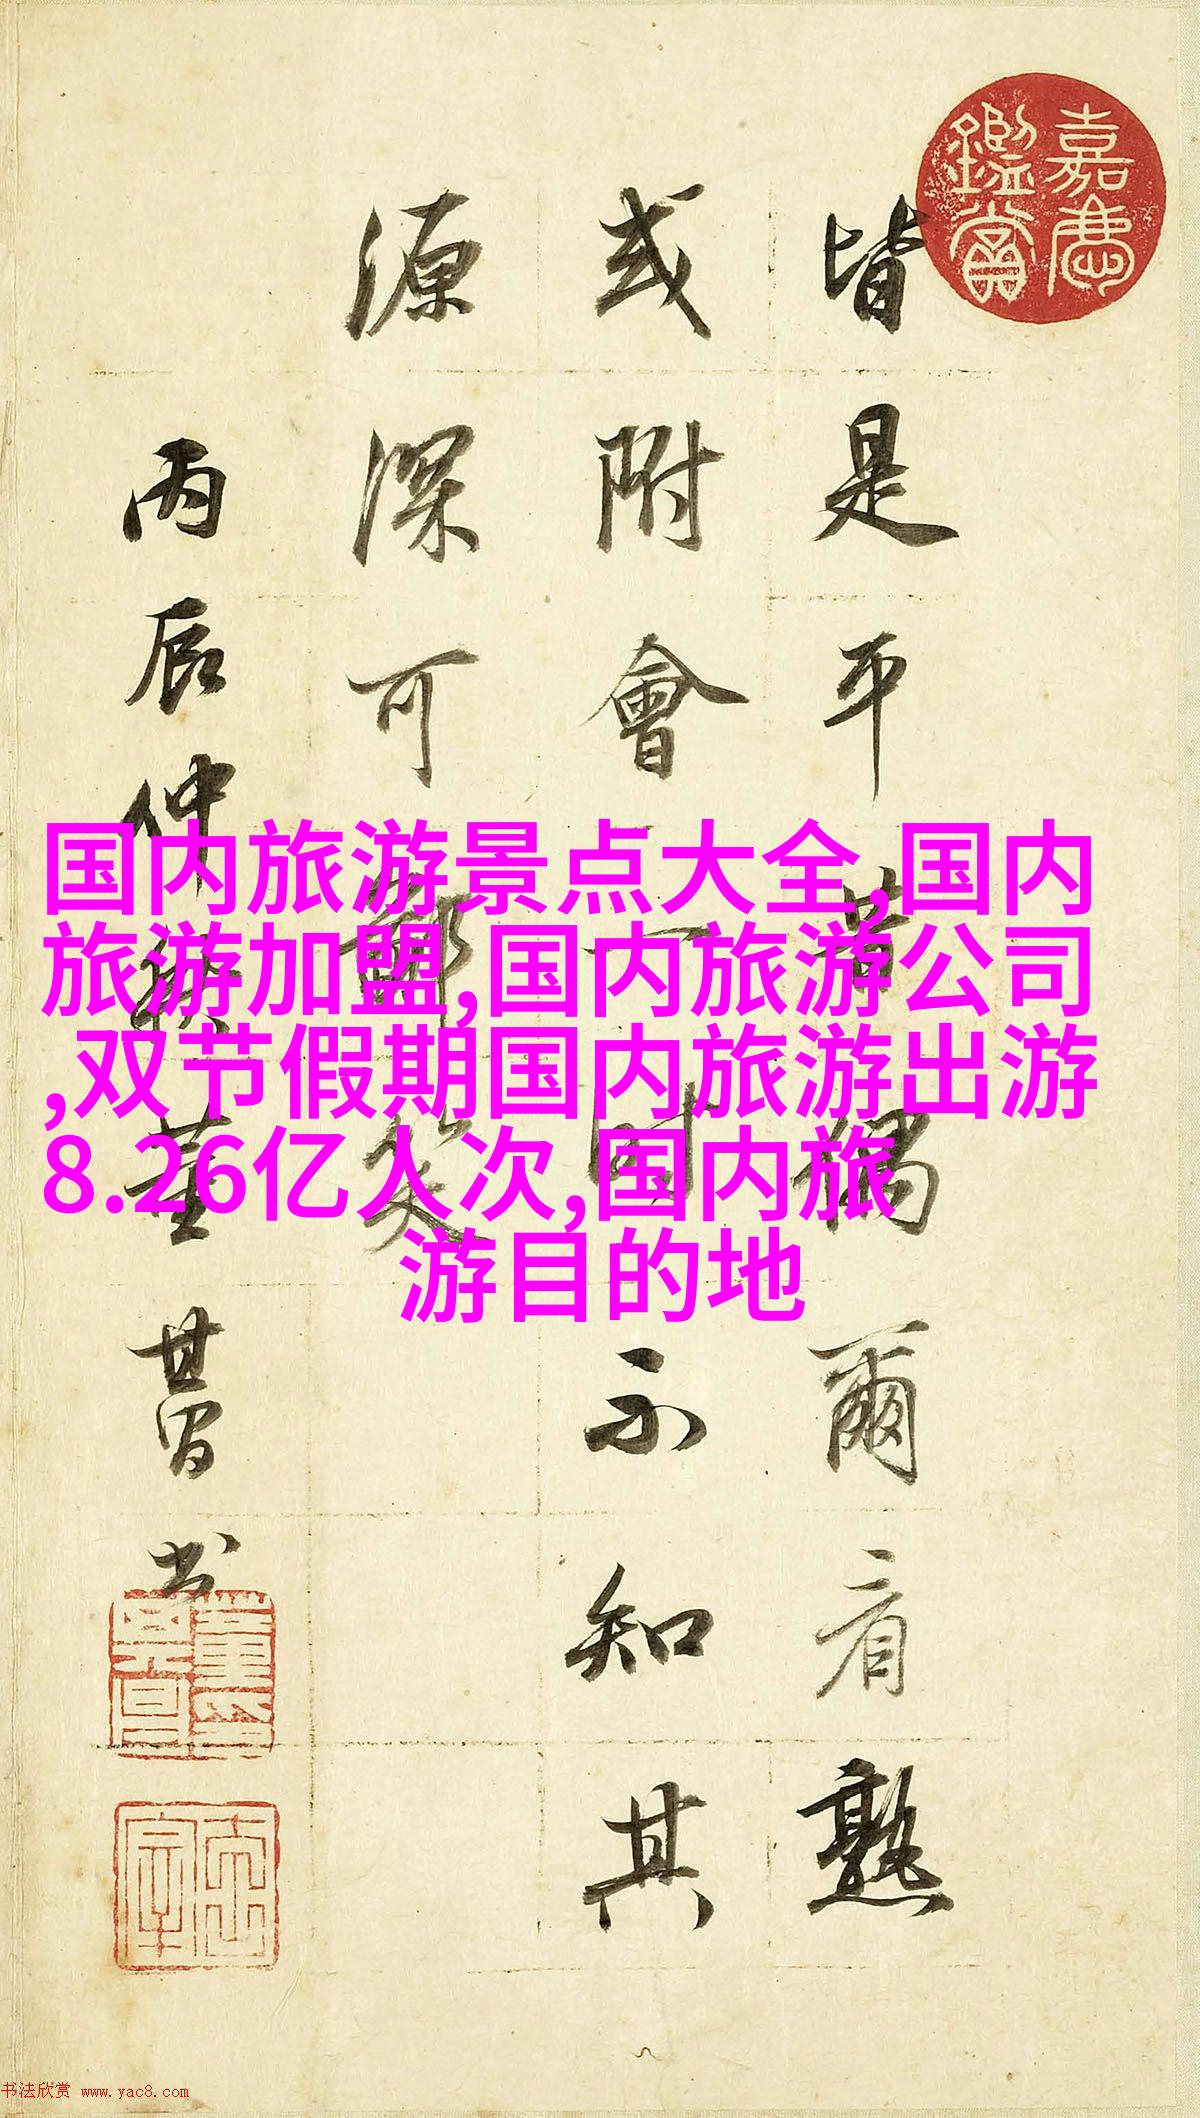 嘉慶
鑑賞
皆是平昔偶爾看熟
或附會一時不知其
源深可鄙笑
丙辰仲秋董其昌書
国内旅游景点大全,国内
旅游加盟,国内旅游公司
,双节假期国内旅游出游
8.26亿人次,国内旅
游目的地
书法欣赏 www.yac8.com